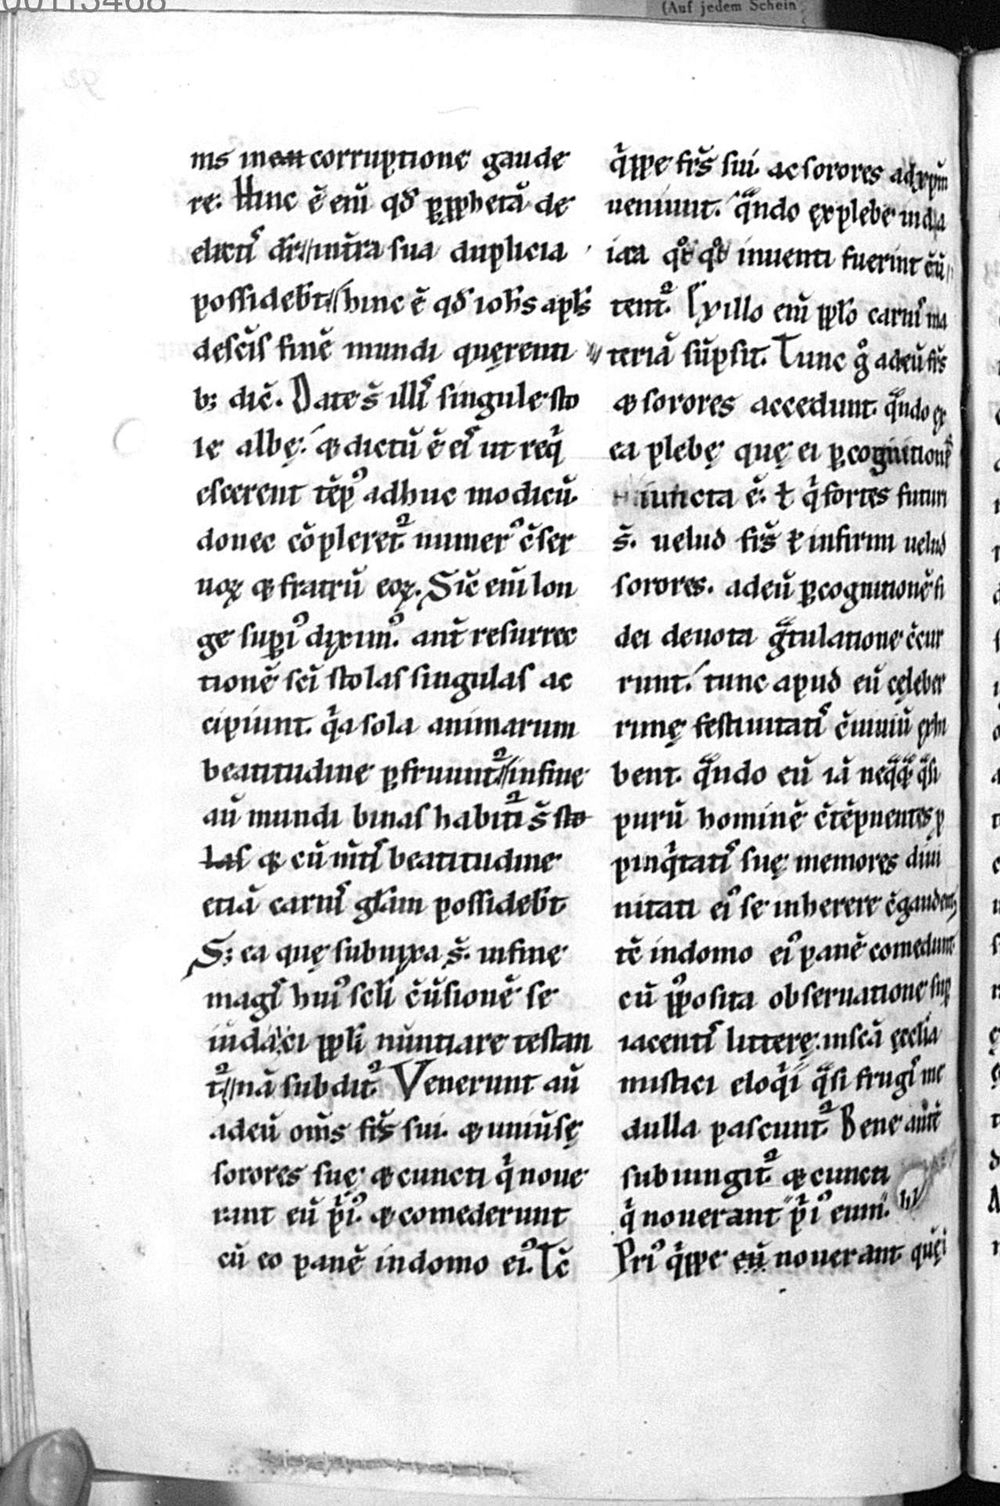 00113468
(Auf jedem Schein
ms incorruptione gaude
re. Hinc ē eni̅ qđ ꝑꝓphetā de
electis dr̄ // in t̄ra sua duplicia
possidebt̄ // hinc ē qđ ioh̄s apl̄s
desc̄is finē mundi quęrenti
bꝫ dic̄. Date s̄ illis singule sto
lę albę. ⁊ dictū ē eis ut req̇
escerent tēpꝰ adhuc modicū.
donec cōpleret᷑ numerꝰ c̄ser
uoꝝ ⁊ fratrū eoꝝ. Sic̄ eni̅ lon
ge supiꝰ diximꝰ. ant̄ resurrec
tionē sc̄i stolas singulas ac
cipiunt. q̇a sola animarum
beatitudine ꝑfruunt᷑ // in fine
aū mundi binas habit᷑i s̄ sto
las ⁊ cū m̄tis beatitudine
etiā carnis gl̄am possidebt̄
Sꝫ ea quę subnixa s̄. in fine
magis huiꝰ sc̄li c̄ūsionē se
iudaici ꝓpl̄i nuntiare testan
t᷑ // nā subdit᷑. Venerunt aū
ad eū om̄s fr̄s sui. ⁊ uniūsę
sorores suę ⁊ cuncti q̇ noue
rant eū ṗiꝰ. ⁊ comederunt
cū eo panē in domo eiꝰ. Tc̄
q̇ppe fr̄s sui ac sorores ad xp̄m
ueniunt. qͣndo ex plebe iuda
ica qͦtqͦt inuenti fuerint c̄ū
tent᷑. Ex illo eni̅ ꝓpl̄o carnis ma
teriā sūpsit. Tunc g̊ ad eū fr̄s
⁊ sorores accedunt. qͣndo ex
ea plebę quę ei ꝑ cognitionē
iuncta ē. ł q̇ fortes futuri
s̄. uelud fr̄s ł infirmi uelud
sorores. ad eū ꝑ cognitionē fi
dei deuota gͣtulatione c̄cur
runt. tunc apud eū cęleber
rimę festiuitatis c̄uiuiū exhi
bent. qͣndo eū iā neqͣqͣ qͣsi
purū hominē c̄tēpnentes p
pinq̇tatis suę memores diui
nitati eiꝰ se inherere c̄gaudent
tē in domo eiꝰ panē comedunt
cū ꝓposita obseruatione sup
iacentis litterę. in sc̄ā ęcclīa
mistici eloq̇i qͣsi frugis me
dulla pascunt᷑. Bene autē
subiungit᷑ ⁊ cuncti
q̇ nouerant ṗiꝰ eum.
Priꝰ q̇ppe eū nouerant quēi